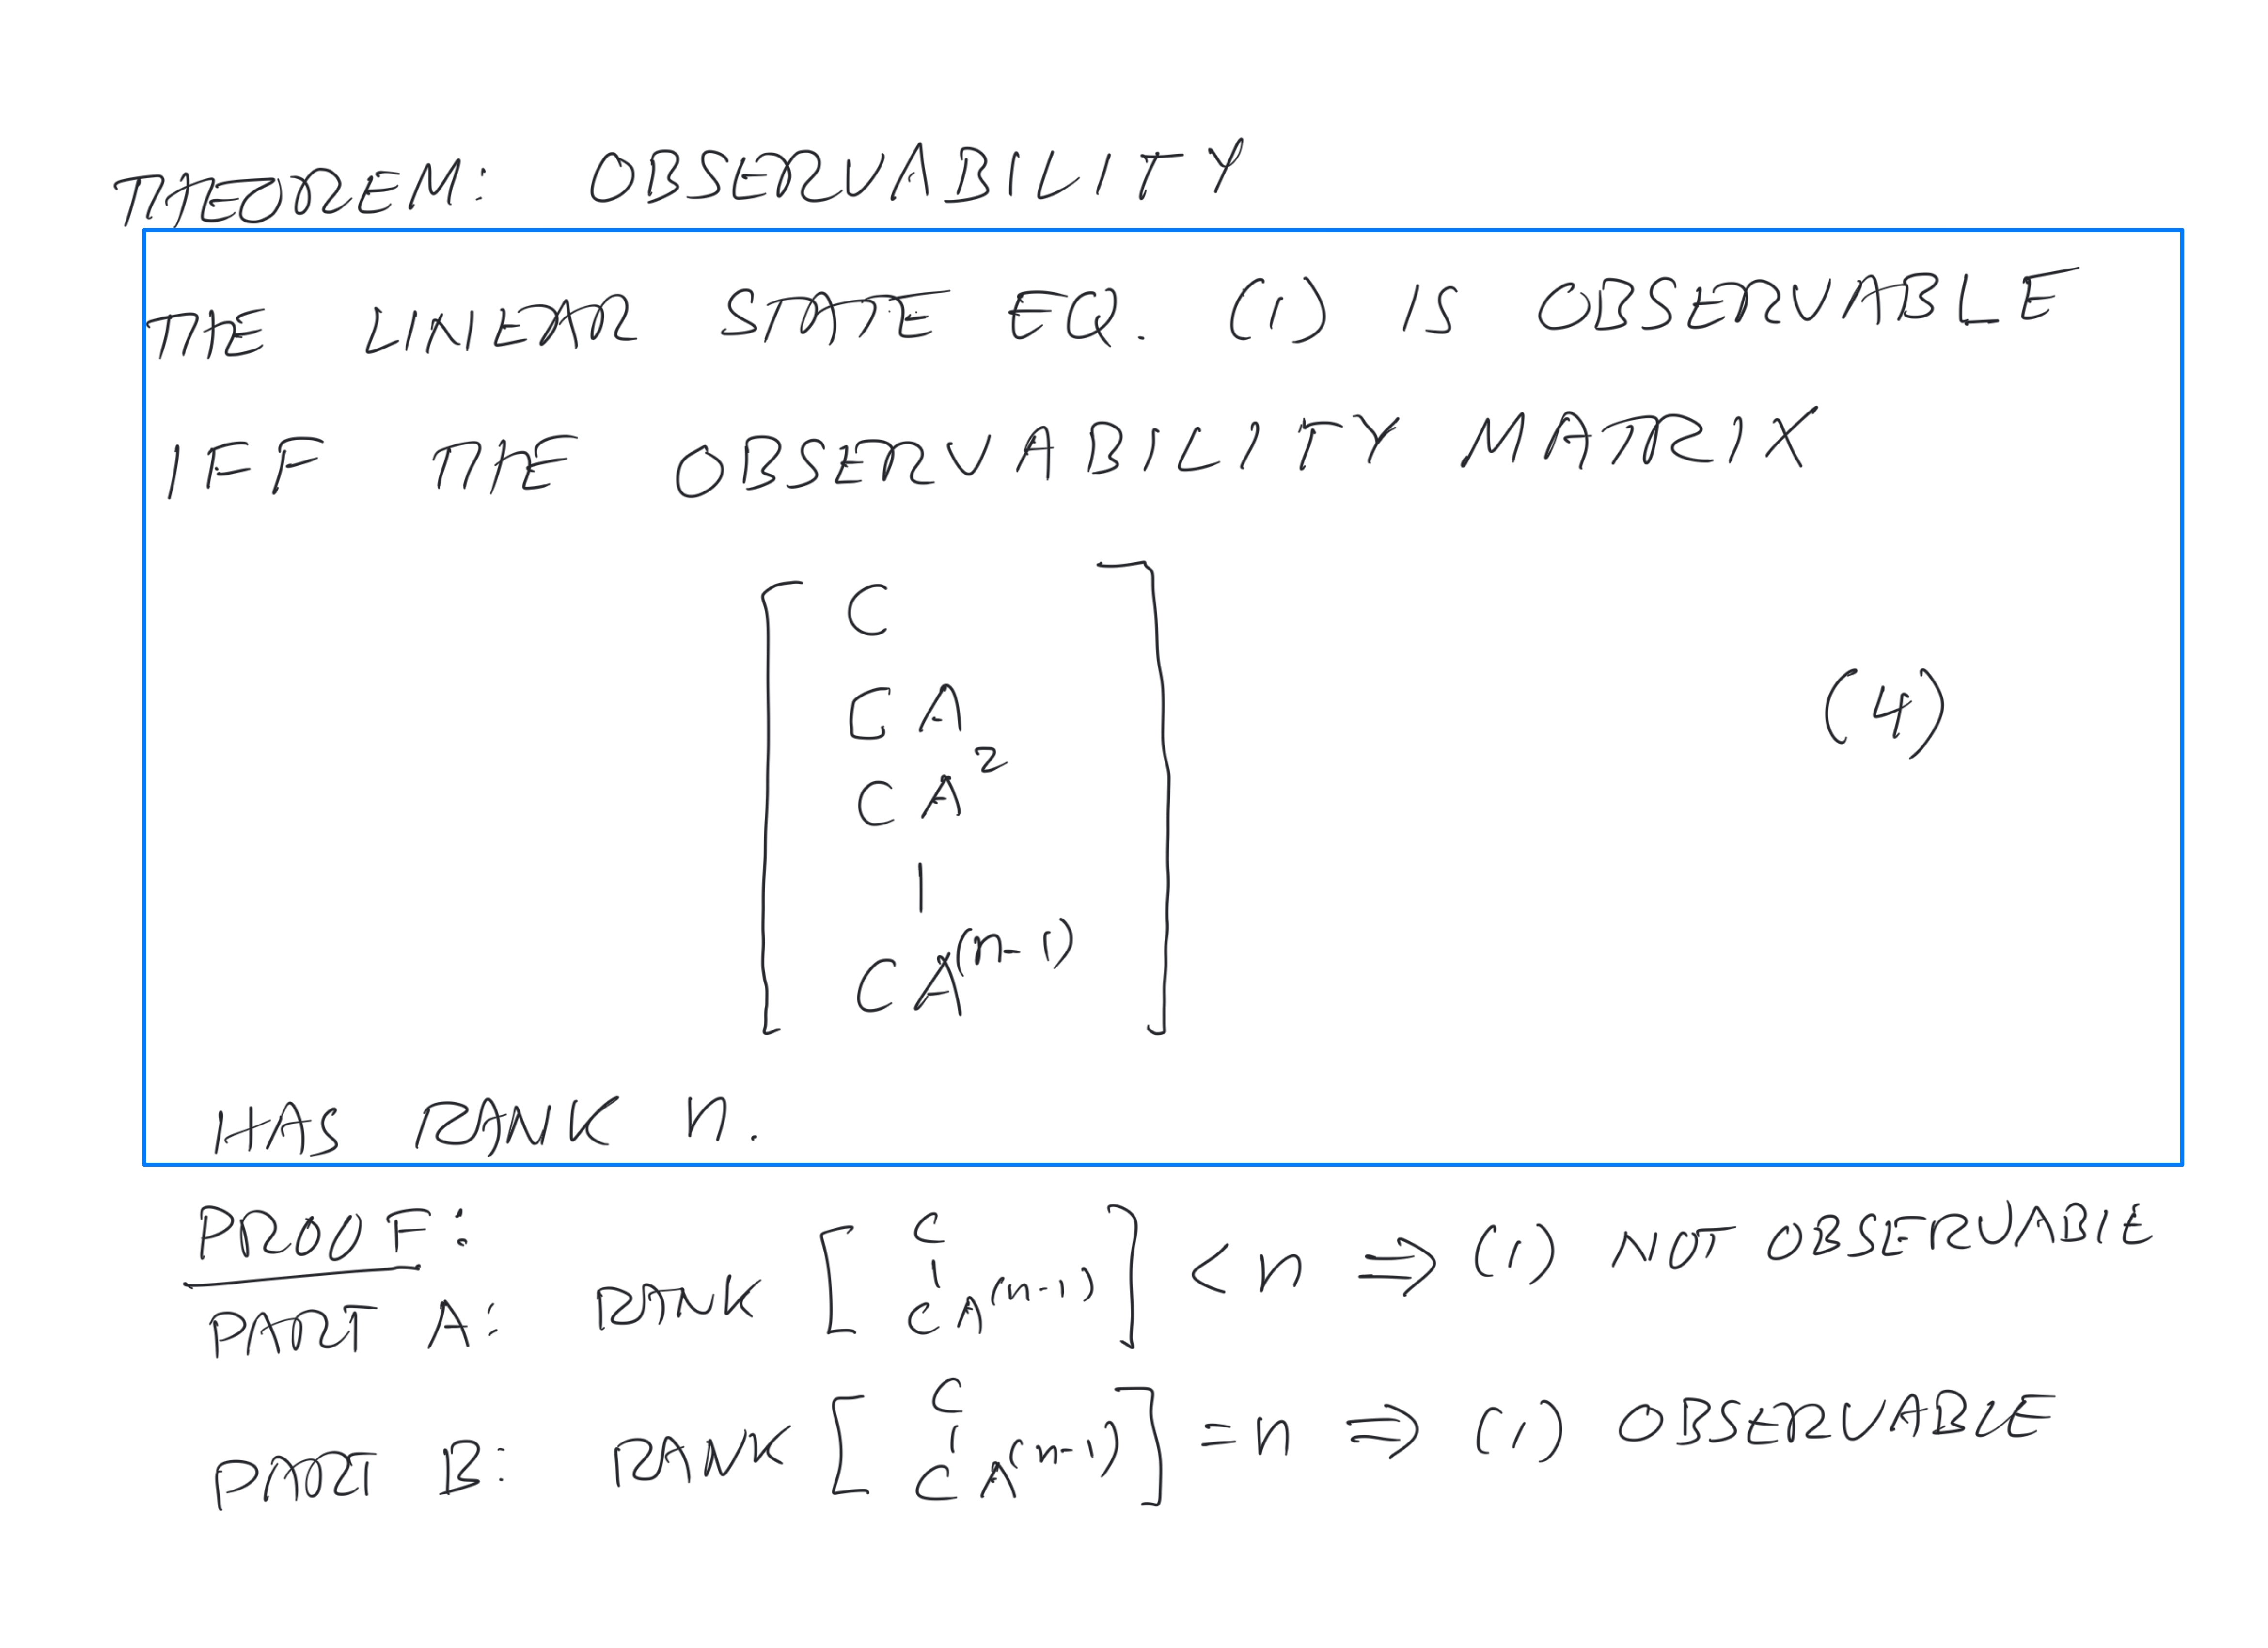 THEOREM: OBSERVABILITY
THE LINEAR STATE EQ. (1) IS OBSERVABLE
IFF THE OBSERVABILITY MATRIX
[ C
CA
CA² (4)
|
CA⁽ⁿ⁻¹⁾ ]
HAS RANK n.
PROOF:
PART A: RANK [ C | CA⁽ⁿ⁻¹⁾ ] < n ⇒ (1) NOT OBSERVABLE
PART B: RANK [ C | CA⁽ⁿ⁻¹⁾ ] = n ⇒ (1) OBSERVABLE